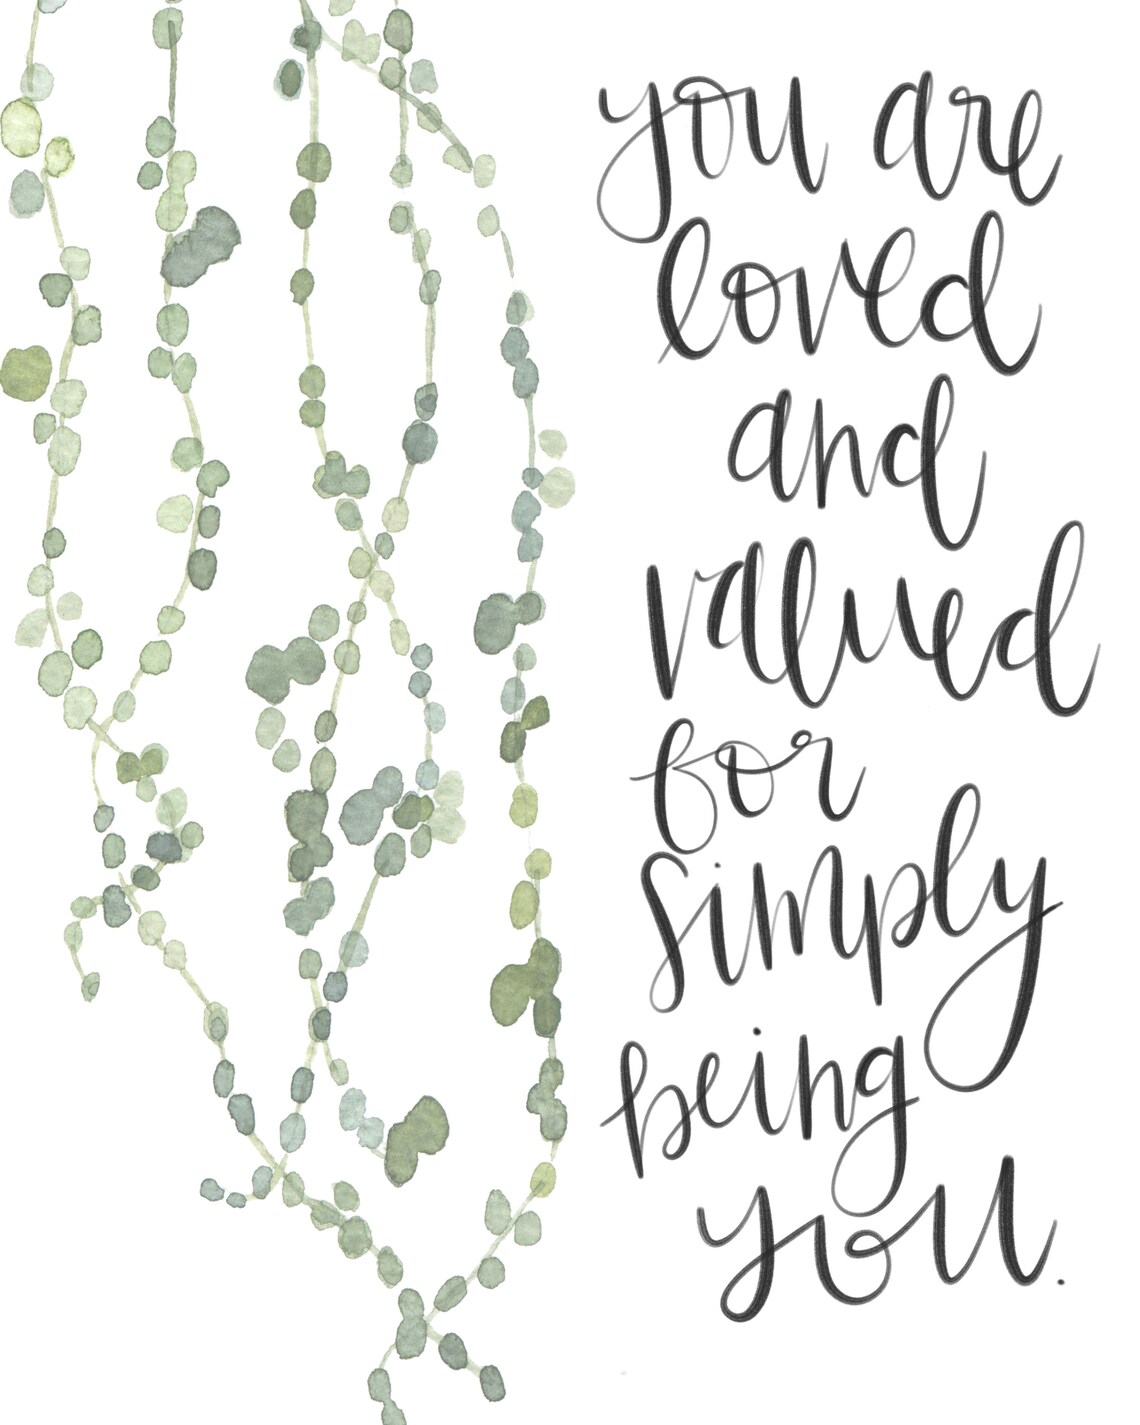 you are
loved
and
valued
for
simply
being
you.